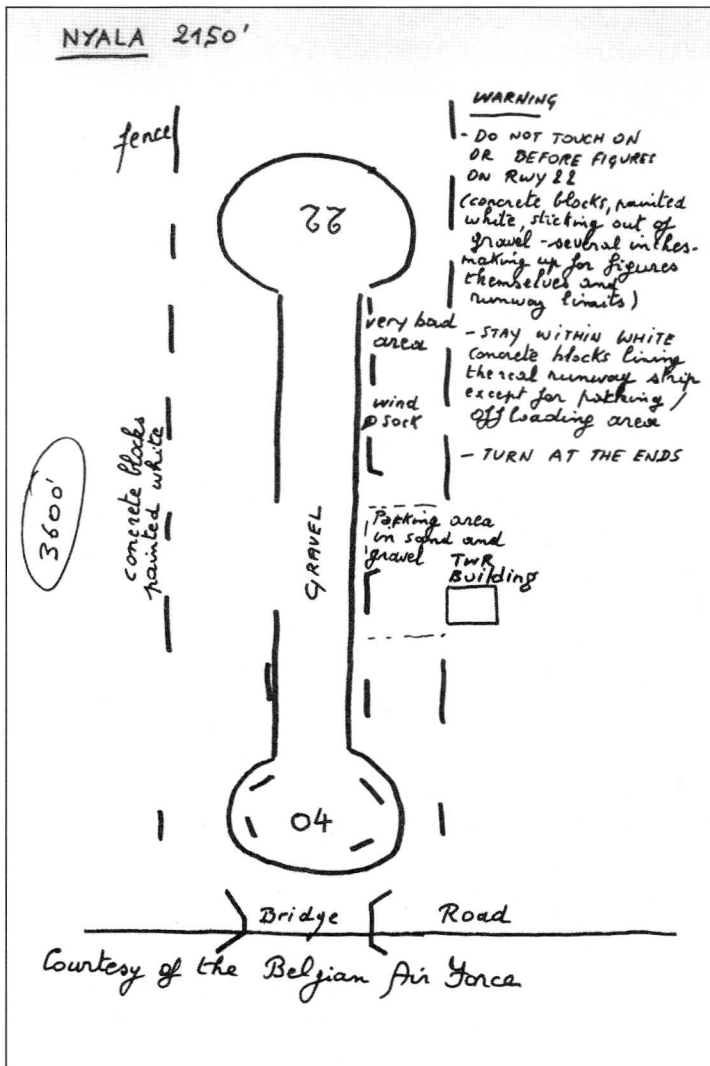 NYALA 2150'
fence
22
WARNING
- DO NOT TOUCH ON
OR BEFORE FIGURES
ON RWY 22
(concrete blocks, painted
white, sticking out of
gravel - several inches -
making up for figures
themselves and
runway limits)
- STAY WITHIN WHITE
concrete blocks lining
the real runway strip
except for parking /
off loading area
- TURN AT THE ENDS
very bad
area
wind
sock
concrete blocks
painted white
3600'
GRAVEL
Parking area
in sand and
gravel
TWR
Building
04
Bridge
Road
Courtesy of the Belgian Air Force